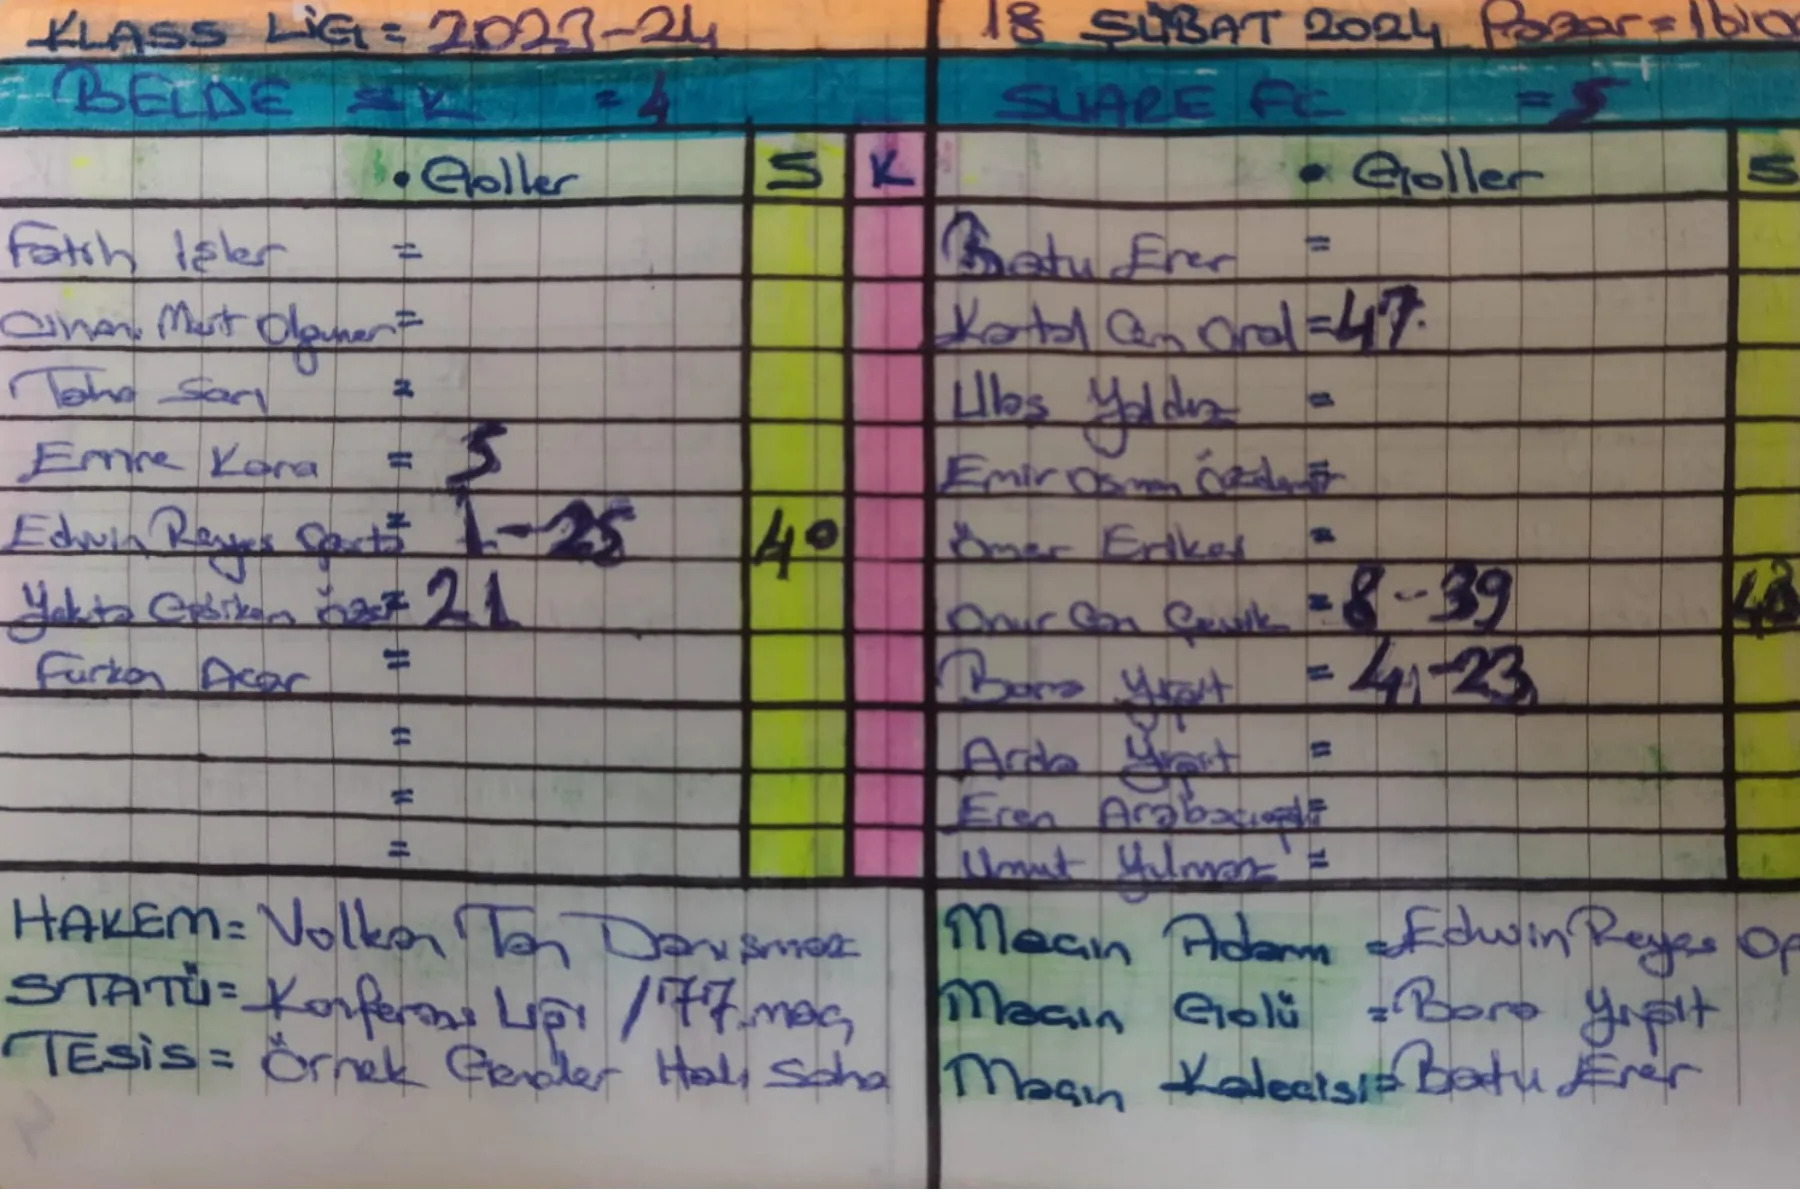 KLASS LİG = 2023-24
18 ŞUBAT 2024 Pazar = 16:00
BELDE = K = 4
SUARE FC = 5
• Goller S K
• Goller S
Fatih İşler =
Batu Erer =
Cihan Mert Olguner =
Kartal Can Oral = 47
Taha Sarı =
Ulaş Yaldız =
Emre Kara = 5
Emir Osman =
Edwin Reyes = 1-25 40
Ömer Erikel =
Yakta = 21
Onur Can Çevik = 8-39 48
Furkan Acar =
Bora Yiğit = 4-23
=
Arda Yiğit =
=
Eren Arabacıoğlu =
=
Umut Yılmaz =
HAKEM = Volkan Tan Danışmaz
STATÜ = Konferans Ligi / 77. maç
TESİS = Örnek Gençler Halı Saha
Maçın Adamı = Edwin Reyes Op
Maçın Golü = Bora Yiğit
Maçın Kalecisi = Batu Erer